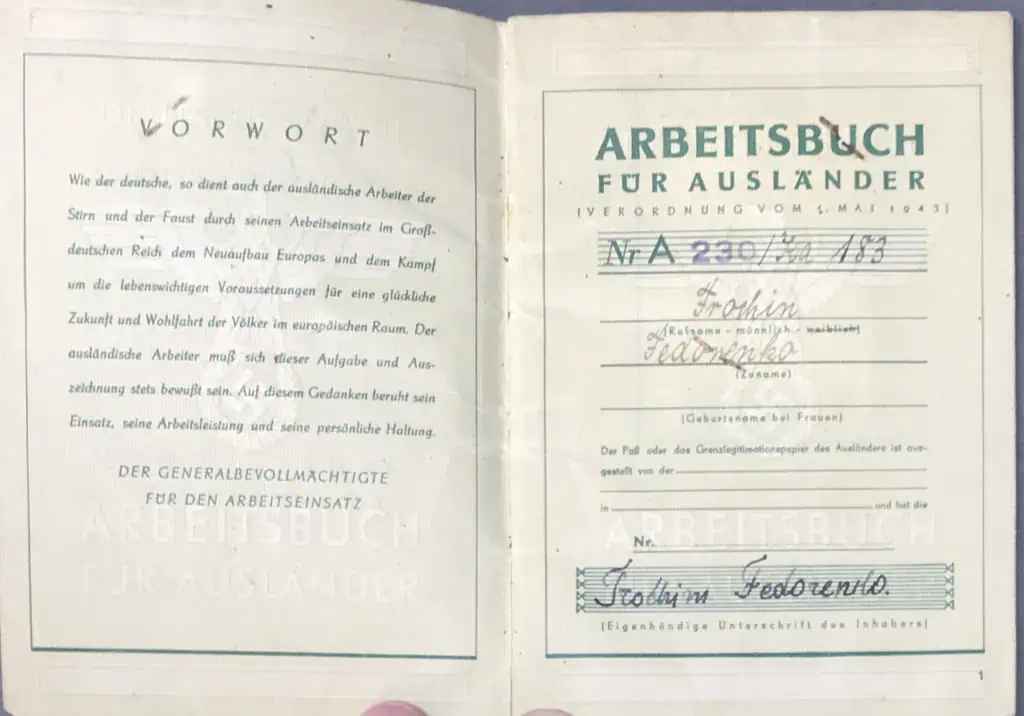 VORWORT
Wie der deutsche, so dient auch der ausländische Arbeiter der
Stirn und der Faust durch seinen Arbeitseinsatz im Groß-
deutschen Reich dem Neuaufbau Europas und dem Kampf
um die lebenswichtigen Voraussetzungen für eine glückliche
Zukunft und Wohlfahrt der Völker im europäischen Raum. Der
ausländische Arbeiter muß sich dieser Aufgabe und Aus-
zeichnung stets bewußt sein. Auf diesem Gedanken beruht sein
Einsatz, seine Arbeitsleistung und seine persönliche Haltung.
DER GENERALBEVOLLMÄCHTIGTE
FÜR DEN ARBEITSEINSATZ
ARBEITSBUCH
FÜR AUSLÄNDER
ARBEITSBUCH
FÜR AUSLÄNDER
(VERORDNUNG VOM 1. MAI 1943)
Nr A 230/Ka 183
Trochim
(Rufname - männlich - weiblich)
Fedorenko
(Zuname)
(Geburtsname bei Frauen)
Der Paß oder das Grenzlegitimationspapier des Ausländers ist aus-
gestellt von der
in und hat die
ARBEITSBUCH
Nr.
Trochim Fedorenko.
(Eigenhändige Unterschrift des Inhabers)
1